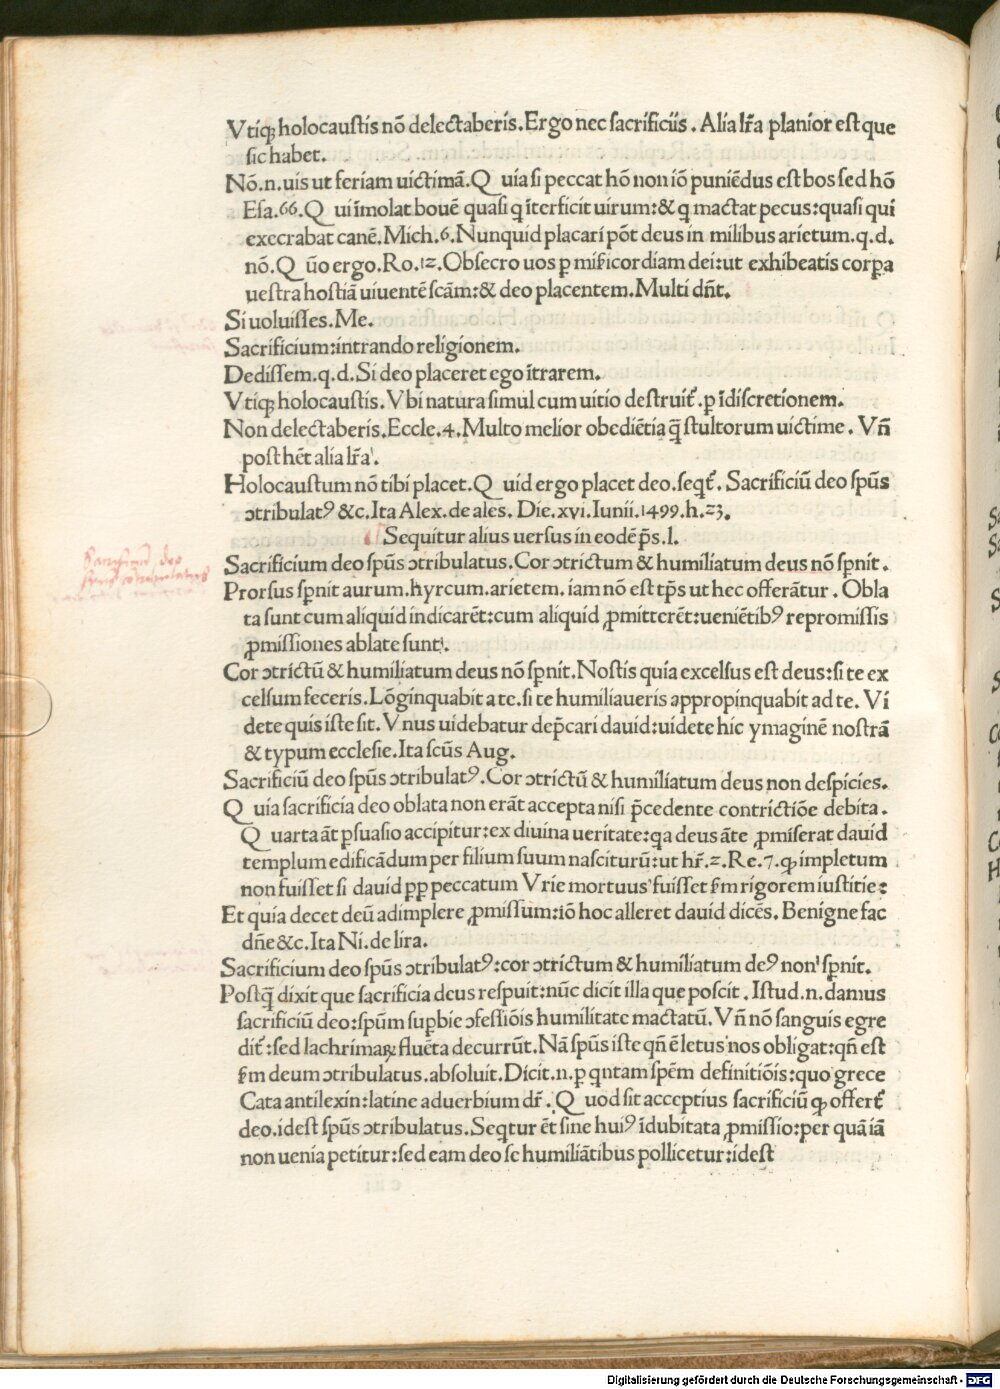 Vtiqꝫ holocaustis nō delectaberis. Ergo nec sacrificiis. Alia lr̄a planior est que
sic habet.
Nō.n.uis ut feriam uictimā. Q uia si peccat hō non iō puniēdus est bos sed hō
Esa.66.Q ui īmolat bouē quasi q īterficit uirum:& q mactat pecus:quasi qui
execrabat canē. Mich.6. Nunquid placari pōt deus in milibus arietum.q.d.
nō.Q ūo ergo. Ro.12. Obsecro uos ꝑ mīficordiam dei:ut exhibeatis corꝑa
uestra hostiā uiuentē scām:& deo placentem. Multi dn̄t.
Si uoluisses. Me.
Sacrificium:intrando religionem.
Dedissem.q.d. Si deo placeret ego ītrarem.
Vtiqꝫ holocaustis. Vbi natura simul cum uitio destruit᷑. ꝑ īdiscretionem.
Non delectaberis. Eccle.4. Multo melior obediētia q̄ stultorum uictime. Vn̄
post hēt alia lr̄a.
Holocaustum nō tibi placet. Q uid ergo placet deo. seqt᷑. Sacrificiū deo spūs
ↄtribulatꝰ &c. Ita Alex. de ales. Die.xvi. Iunii.1499.h.23.
Sequitur alius uersus in eodē p̄s.l.
Sacrificium deo spūs ↄtribulatus. Cor ↄtrictum & humiliatum deus nō sꝑnit.
Sacrificiū deo
spūs contribulatus
Prorsus sꝑnit aurum. hyrcum. arietem. iam nō est tp̄s ut hec offerātur. Obla
ta sunt cum aliquid indicarēt:cum aliquid ꝓmitterēt:ueniētibꝰ repromissis
ꝓmissiones ablate sunt.
Cor ↄtrictū & humiliatum deus nō sꝑnit. Nostis quia excelsus est deus:si te ex
celsum feceris. Lōginquabit a te. si te humiliaueris appropinquabit ad te. Vi
dete quis iste sit. Vnus uidebatur dep̄cari dauid:uidete hic ymaginē nostrā
& typum ecclesie. Ita scūs Aug.
Sacrificiū deo spūs ↄtribulatꝰ. Cor ↄtrictū & humiliatum deus non despicies.
Q uia sacrificia deo oblata non erāt accepta nisi p̄cedente contrictiōe debita.
Q uarta āt ꝑsuasio accipitur:ex diuina ueritate:qa deus āte ꝓmiserat dauid
templum edificādum per filium suum nasciturū:ut hr̄.2. Re.7. ꝙ impletum
non fuisset si dauid ꝑp peccatum Vrie mortuus fuisset ẜm rigorem iustitie:
Et quia decet deū adimplere ꝓmissum:iō hoc alleret dauid dicēs. Benigne fac
dn̄e &c. Ita Ni. de lira.
Sacrificium deo spūs ↄtribulatꝰ:cor ↄtrictum & humiliatum deꝰ non sꝑnit.
Postq̄ dixit que sacrificia deus respuit:nūc dicit illa que poscit. Istud.n.damus
sacrificiū deo:spūm suꝑbie ↄfessiōis humilitate mactatū. Vn̄ nō sanguis egre
dit᷑:sed lachrimaꝝ fluēta decurrūt. Nā spūs iste qn̄ ē letus nos obligat:qn̄ est
ẜm deum ↄtribulatus. absoluit. Dicit.n.ꝑ qntam spēm definitiōis:quo grece
Cata antilexin:latine aduerbium dr̄. Q uod sit acceptius sacrificiū ꝙ offert᷑
deo. idest spūs ↄtribulatus. Seqtur ēt sine huiꝰ īdubitata ꝓmissio:per quā iā
non uenia petitur:sed eam deo se humiliātibus pollicetur:idest
Digitalisierung gefördert durch die Deutsche Forschungsgemeinschaft - DFG